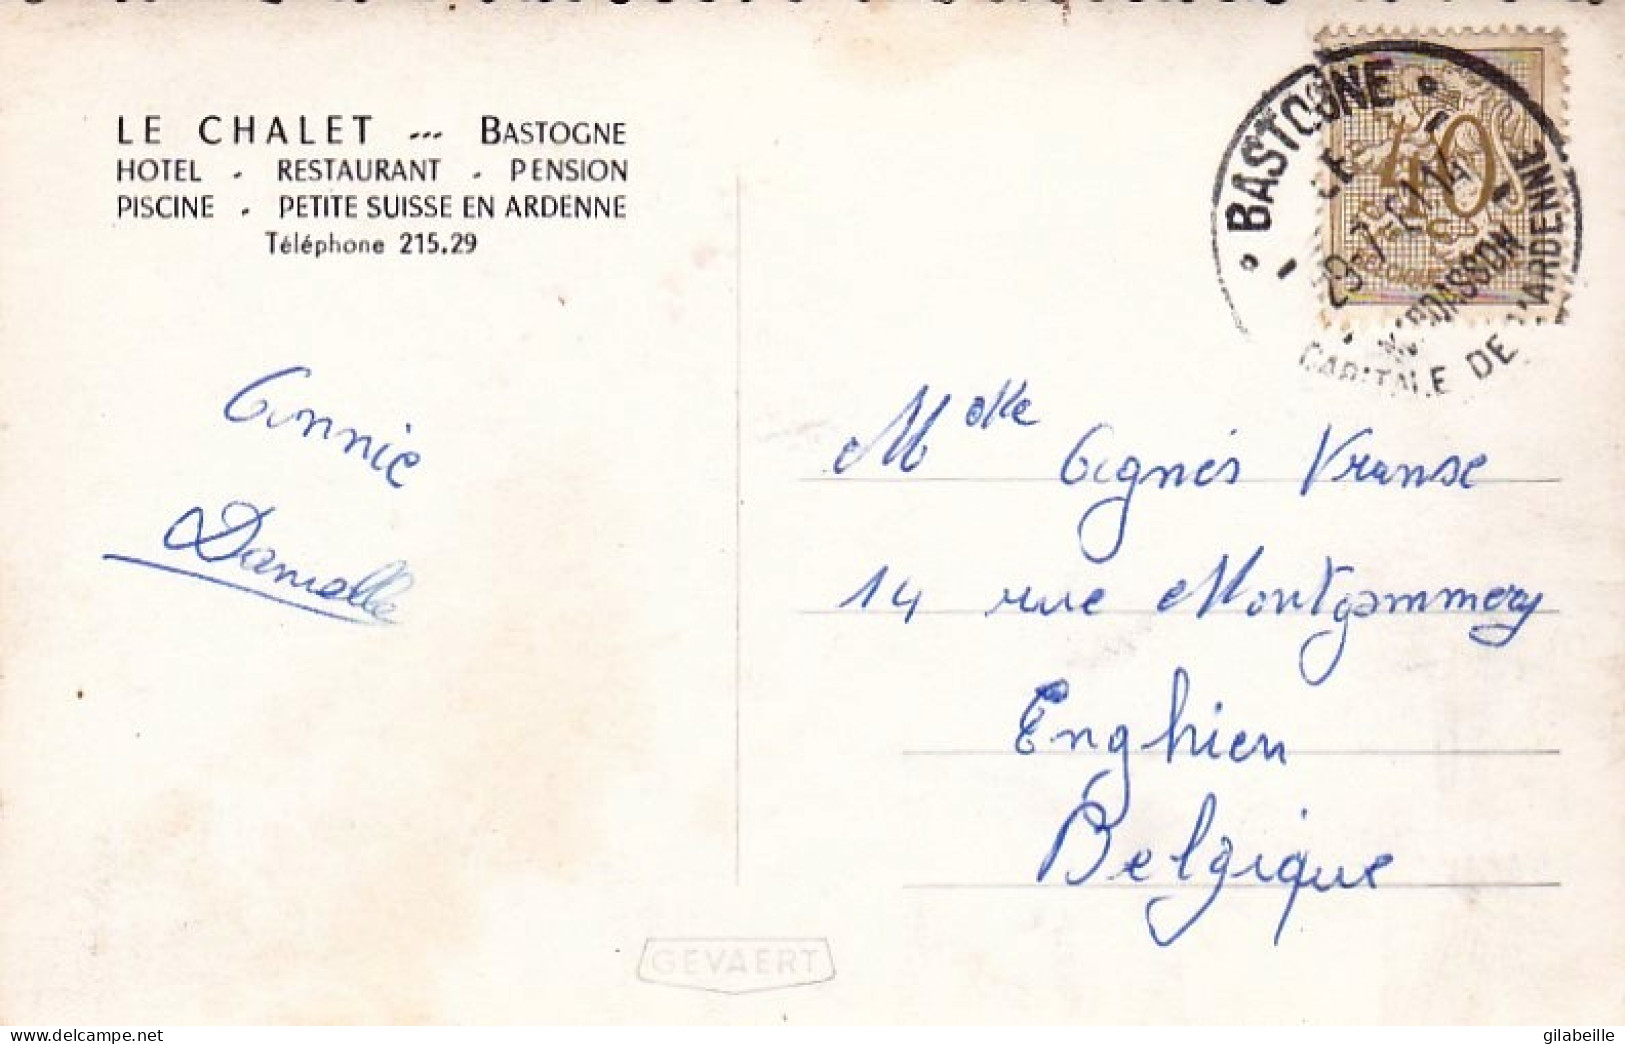 LE CHALET ... BASTOGNE
HOTEL - RESTAURANT - PENSION
PISCINE - PETITE SUISSE EN ARDENNE
Téléphone 215.29
Annie
Danielle
BASTOGNE
40
BELGIQUE
MARDASSON
CAPITALE DE L'ARDENNE
Melle Agnès Vranse
14 rue Montgommery
Enghien
Belgique
GEVAERT
www.delcampe.net
gilabeille